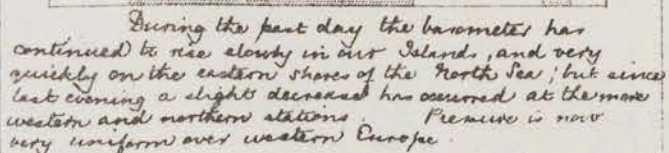 During the past day the barometer has
continued to rise slowly in our Islands, and very
quickly on the eastern shores of the North Sea; but since
last evening a slight decrease has occurred at the more
western and northern stations. Pressure is now
very uniform over western Europe.